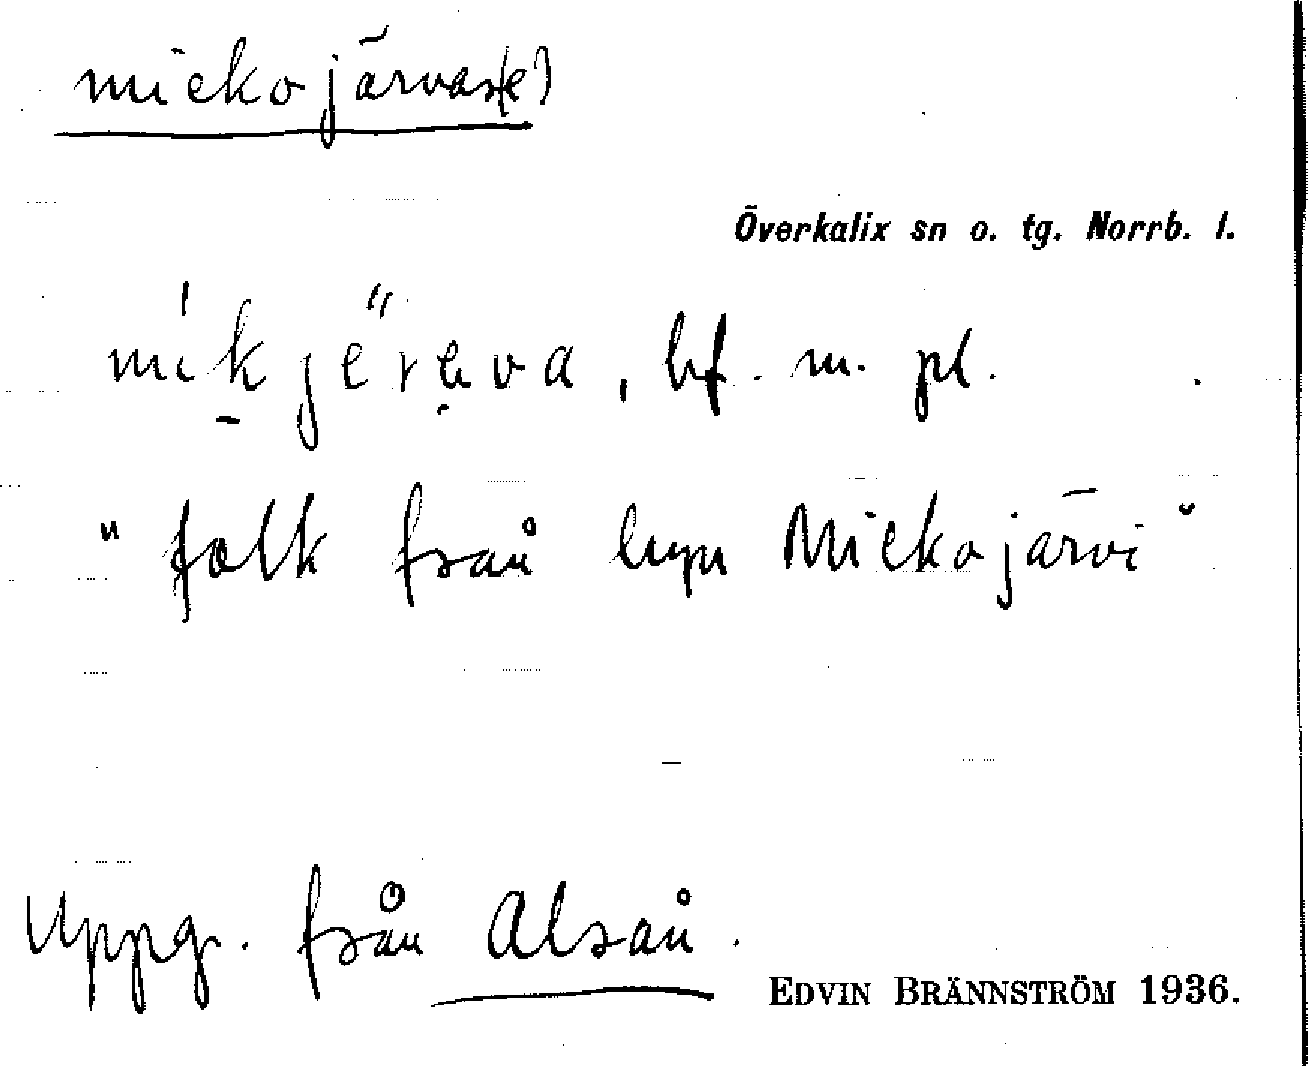 mickojärvas(e)
Överkalix sn o. tg. Norrb. l.
bf. m. pl.
"folk från byn Mickojärvi"
Uppg. från Alsån.
EDVIN BRÄNNSTRÖM 1936.